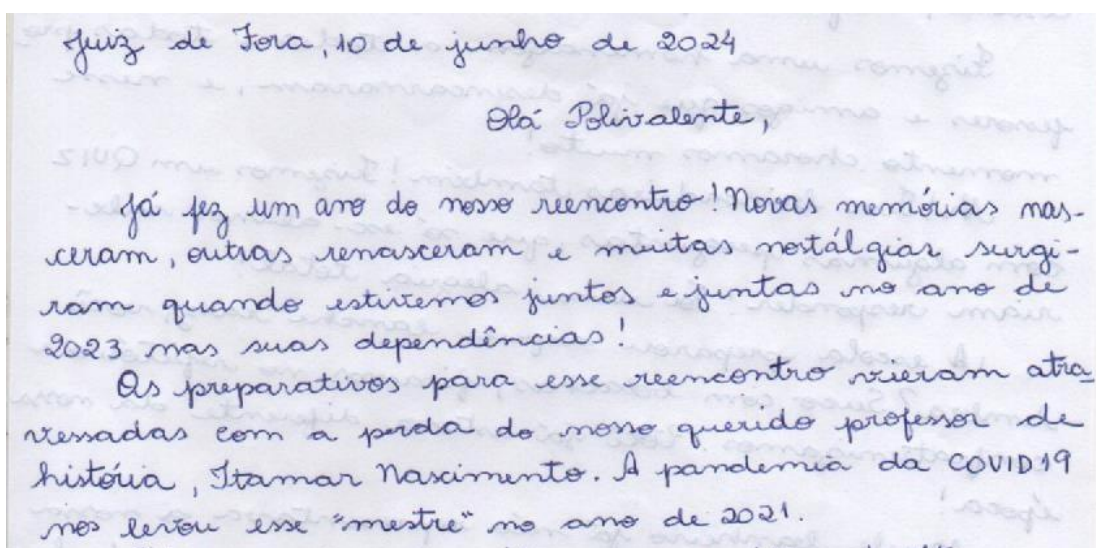 Juiz de Fora, 10 de junho de 2024
Olá Polivalente,
Já fez um ano do nosso reencontro! Novas memórias nas-
ceram, outras renasceram e muitas nostálgias surgi-
ram quando estivemos juntos e juntas no ano de
2023 nas suas dependências!
Os preparativos para esse reencontro vieram atra
vessadas com a perda do nosso querido professor de
história, Itamar Nascimento. A pandemia da COVID19
nos levou esse "mestre" no ano de 2021.